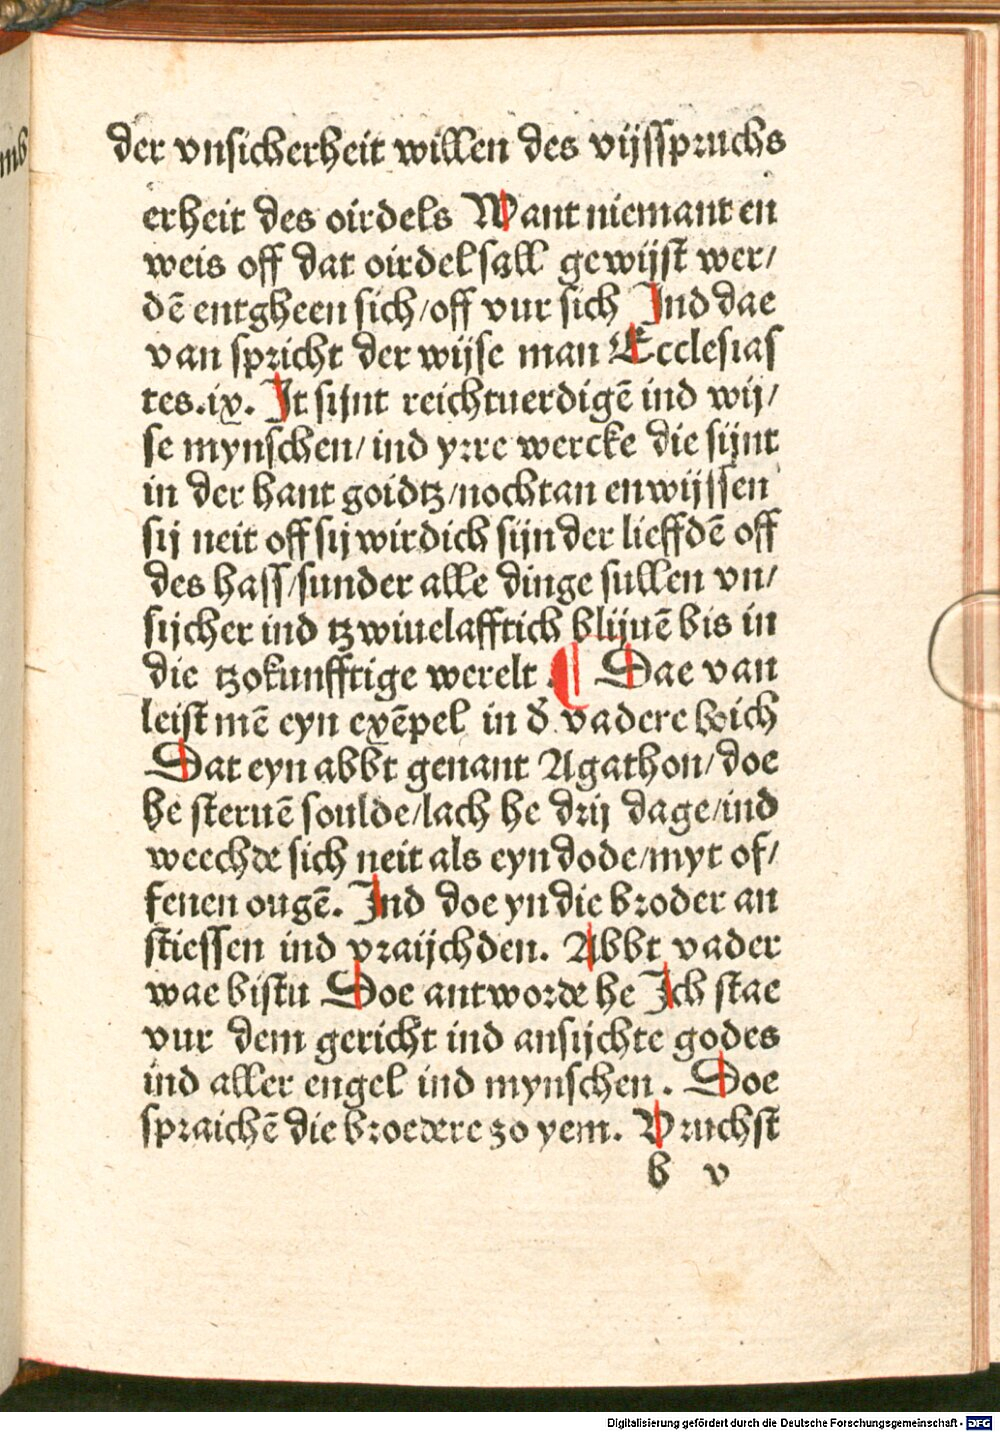 der vnsicherheit willen des vijsspruchs
erheit des oirdels Want niemant en
weis off dat oirdel sall gewijst wer/
dē entgheen sich/off vur sich Ind dae
van spricht der wijse man Ecclesias
tes.ix. It sijnt reichtuerdigē ind wij/
se mynschen/ind yrre wercke die sijnt
in der hant goidtz/nochtan en wijssen
sij neit off sij wirdich sijn der lieffdē off
des hass/sunder alle dinge sullen vn/
sijcher ind tzwiuelafftich blijuē bis in
die tzokunfftige werelt. ¶ Dae van
leist mē eyn exēpel in d̕ vadere boich
Dat eyn abbt genant Agathon/doe
he steruē soulde/lach he drij dage/ind
weechde sich neit als eyn dode/myt of/
fenen ougē. Ind doe yn die broder an
stiessen ind vraijchden. Abbt vader
wae bistu Doe antworde he Ich stae
vur dem gericht ind ansijchte godes
ind aller engel ind mynschen. Doe
spraichē die broedere zo yem. Vruchst
b v
Digitalisierung gefördert durch die Deutsche Forschungsgemeinschaft - DFG